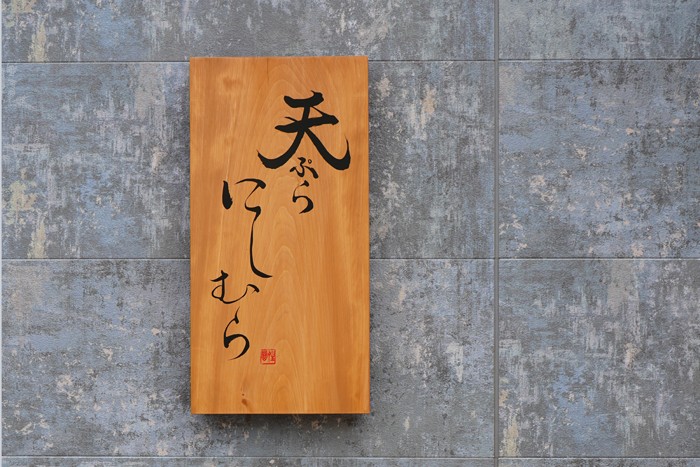 天ぷら
にしむら